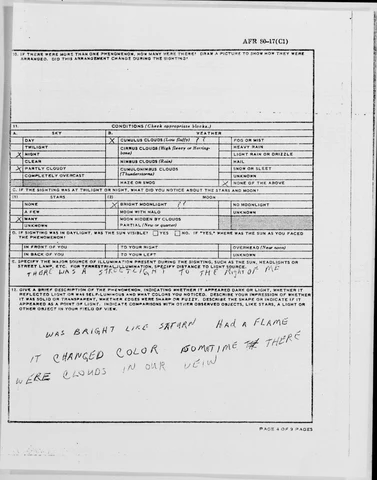 AFR 80-17(C1)
10. IF THERE WERE MORE THAN ONE PHENOMENON, HOW MANY WERE THERE? DRAW A PICTURE TO SHOW HOW THEY WERE
ARRANGED. DID THIS ARRANGEMENT CHANGE DURING THE SIGHTING?
11. CONDITIONS (Check appropriate blocks.)
A. SKY B. WEATHER
DAY X CUMULUS CLOUDS (Low fluffy) ?? FOG OR MIST
TWILIGHT CIRRUS CLOUDS (High fleecy or Herring- HEAVY RAIN
X NIGHT bone) LIGHT RAIN OR DRIZZLE
CLEAR NIMBUS CLOUDS (Rain) HAIL
X PARTLY CLOUDY CUMULONIMBUS CLOUDS SNOW OR SLEET
COMPLETELY OVERCAST (Thunderstorms) UNKNOWN
HAZE OR SMOG X NONE OF THE ABOVE
C. IF THE SIGHTING WAS AT TWILIGHT OR NIGHT, WHAT DID YOU NOTICE ABOUT THE STARS AND MOON?
(1) STARS (2) MOON
NONE X BRIGHT MOONLIGHT NO MOONLIGHT
A FEW MOON WITH HALO UNKNOWN
X MANY MOON HIDDEN BY CLOUDS
UNKNOWN PARTIAL (New or quarter)
D. IF SIGHTING WAS IN DAYLIGHT, WAS THE SUN VISIBLE? YES NO. IF "YES," WHERE WAS THE SUN AS YOU FACED
THE PHENOMENON?
IN FRONT OF YOU TO YOUR RIGHT OVERHEAD (Near noon)
IN BACK OF YOU TO YOUR LEFT UNKNOWN
E. SPECIFY THE MAJOR SOURCE OF ILLUMINATION PRESENT DURING THE SIGHTING, SUCH AS THE SUN, HEADLIGHTS OR
STREET LAMP, ETC. FOR TERRESTRIAL ILLUMINATION, SPECIFY DISTANCE TO LIGHT SOURCE.
THERE WAS A STREETLIGHT TO THE RIGHT OF ME
12. GIVE A BRIEF DESCRIPTION OF THE PHENOMENON, INDICATING WHETHER IT APPEARED DARK OR LIGHT, WHETHER IT
REFLECTED LIGHT OR WAS SELF-LUMINOUS AND WHAT COLORS YOU NOTICED. DESCRIBE YOUR IMPRESSION OF WHETHER
IT WAS SOLID OR TRANSPARENT, WHETHER EDGES WERE SHARP OR FUZZY. DESCRIBE THE SHAPE OR INDICATE IF IT
APPEARED AS A POINT OF LIGHT. INDICATE COMPARISONS WITH OTHER OBSERVED OBJECTS, LIKE STARS, A LIGHT OR
OTHER OBJECT IN YOUR FIELD OF VIEW.
WAS BRIGHT LIKE SATURN HAD A FLAME
IT CHANGED COLOR SOMETIME THERE
WERE CLOUDS IN OUR VEIW
PAGE 4 OF 9 PAGES